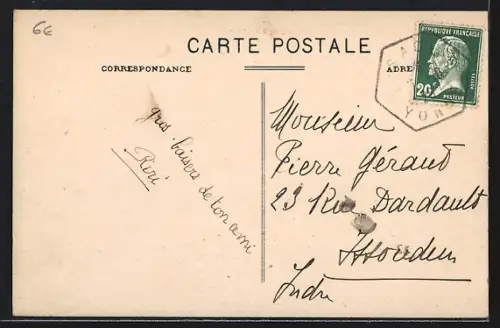 6€
CARTE POSTALE
CORRESPONDANCE
ADRE
REPUBLIQUE FRANÇAISE
POSTES
20c
PASTEUR
gros baisers de ton ami
Riri
Monsieur
Pierre Géraud
23 Rue Dardault
Issoudun
Indre